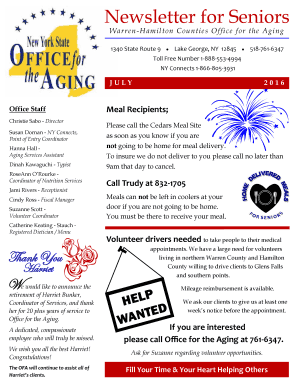 New York State
OFFICE for
the AGING
Newsletter for Seniors
Warren-Hamilton Counties Office for the Aging
1340 State Route 9 • Lake George, NY 12845 • 518-761-6347
Toll Free Number 1-888-553-4994
NY Connects 1-866-805-3931
JULY 2016
Office Staff
Christie Sabo - Director
Susan Dornan - NY Connects,
Point of Entry Coordinator
Hanna Hall -
Aging Services Assistant
Dinah Kawaguchi - Typist
RoseAnn O'Rourke -
Coordinator of Nutrition Services
Jami Rivers - Receptionist
Cindy Ross - Fiscal Manager
Suzanne Scott -
Volunteer Coordinator
Catherine Keating - Stauch -
Registered Dietician / Menu
Thank You
Harriet
We would like to announce the
retirement of Harriet Bunker,
Coordinator of Services, and thank
her for 20 plus years of service to
Office for the Aging.
A dedicated, compassionate
employee who will truly be missed.
We wish you all the best Harriet!
Congratulations!
The OFA will continue to assist all of
Harriet's clients.
Meal Recipients;
Please call the Cedars Meal Site
as soon as you know if you are
not going to be home for meal delivery.
To insure we do not deliver to you please call no later than
9am that day to cancel.
Call Trudy at 832-1705
Meals can not be left in coolers at your
door if you are not going to be home.
You must be there to receive your meal.
HOME DELIVERED MEALS
FOR SENIORS
Volunteer drivers needed to take people to their medical
appointments. We have a large need for volunteers
living in northern Warren County and Hamilton
County willing to drive clients to Glens Falls
and southern points.
Mileage reimbursement is available.
We ask our clients to give us at least one
week's notice before the appointment.
HELP
WANTED
If you are interested
please call Office for the Aging at 761-6347.
Ask for Suzanne regarding volunteer opportunities.
Fill Your Time & Your Heart Helping Others